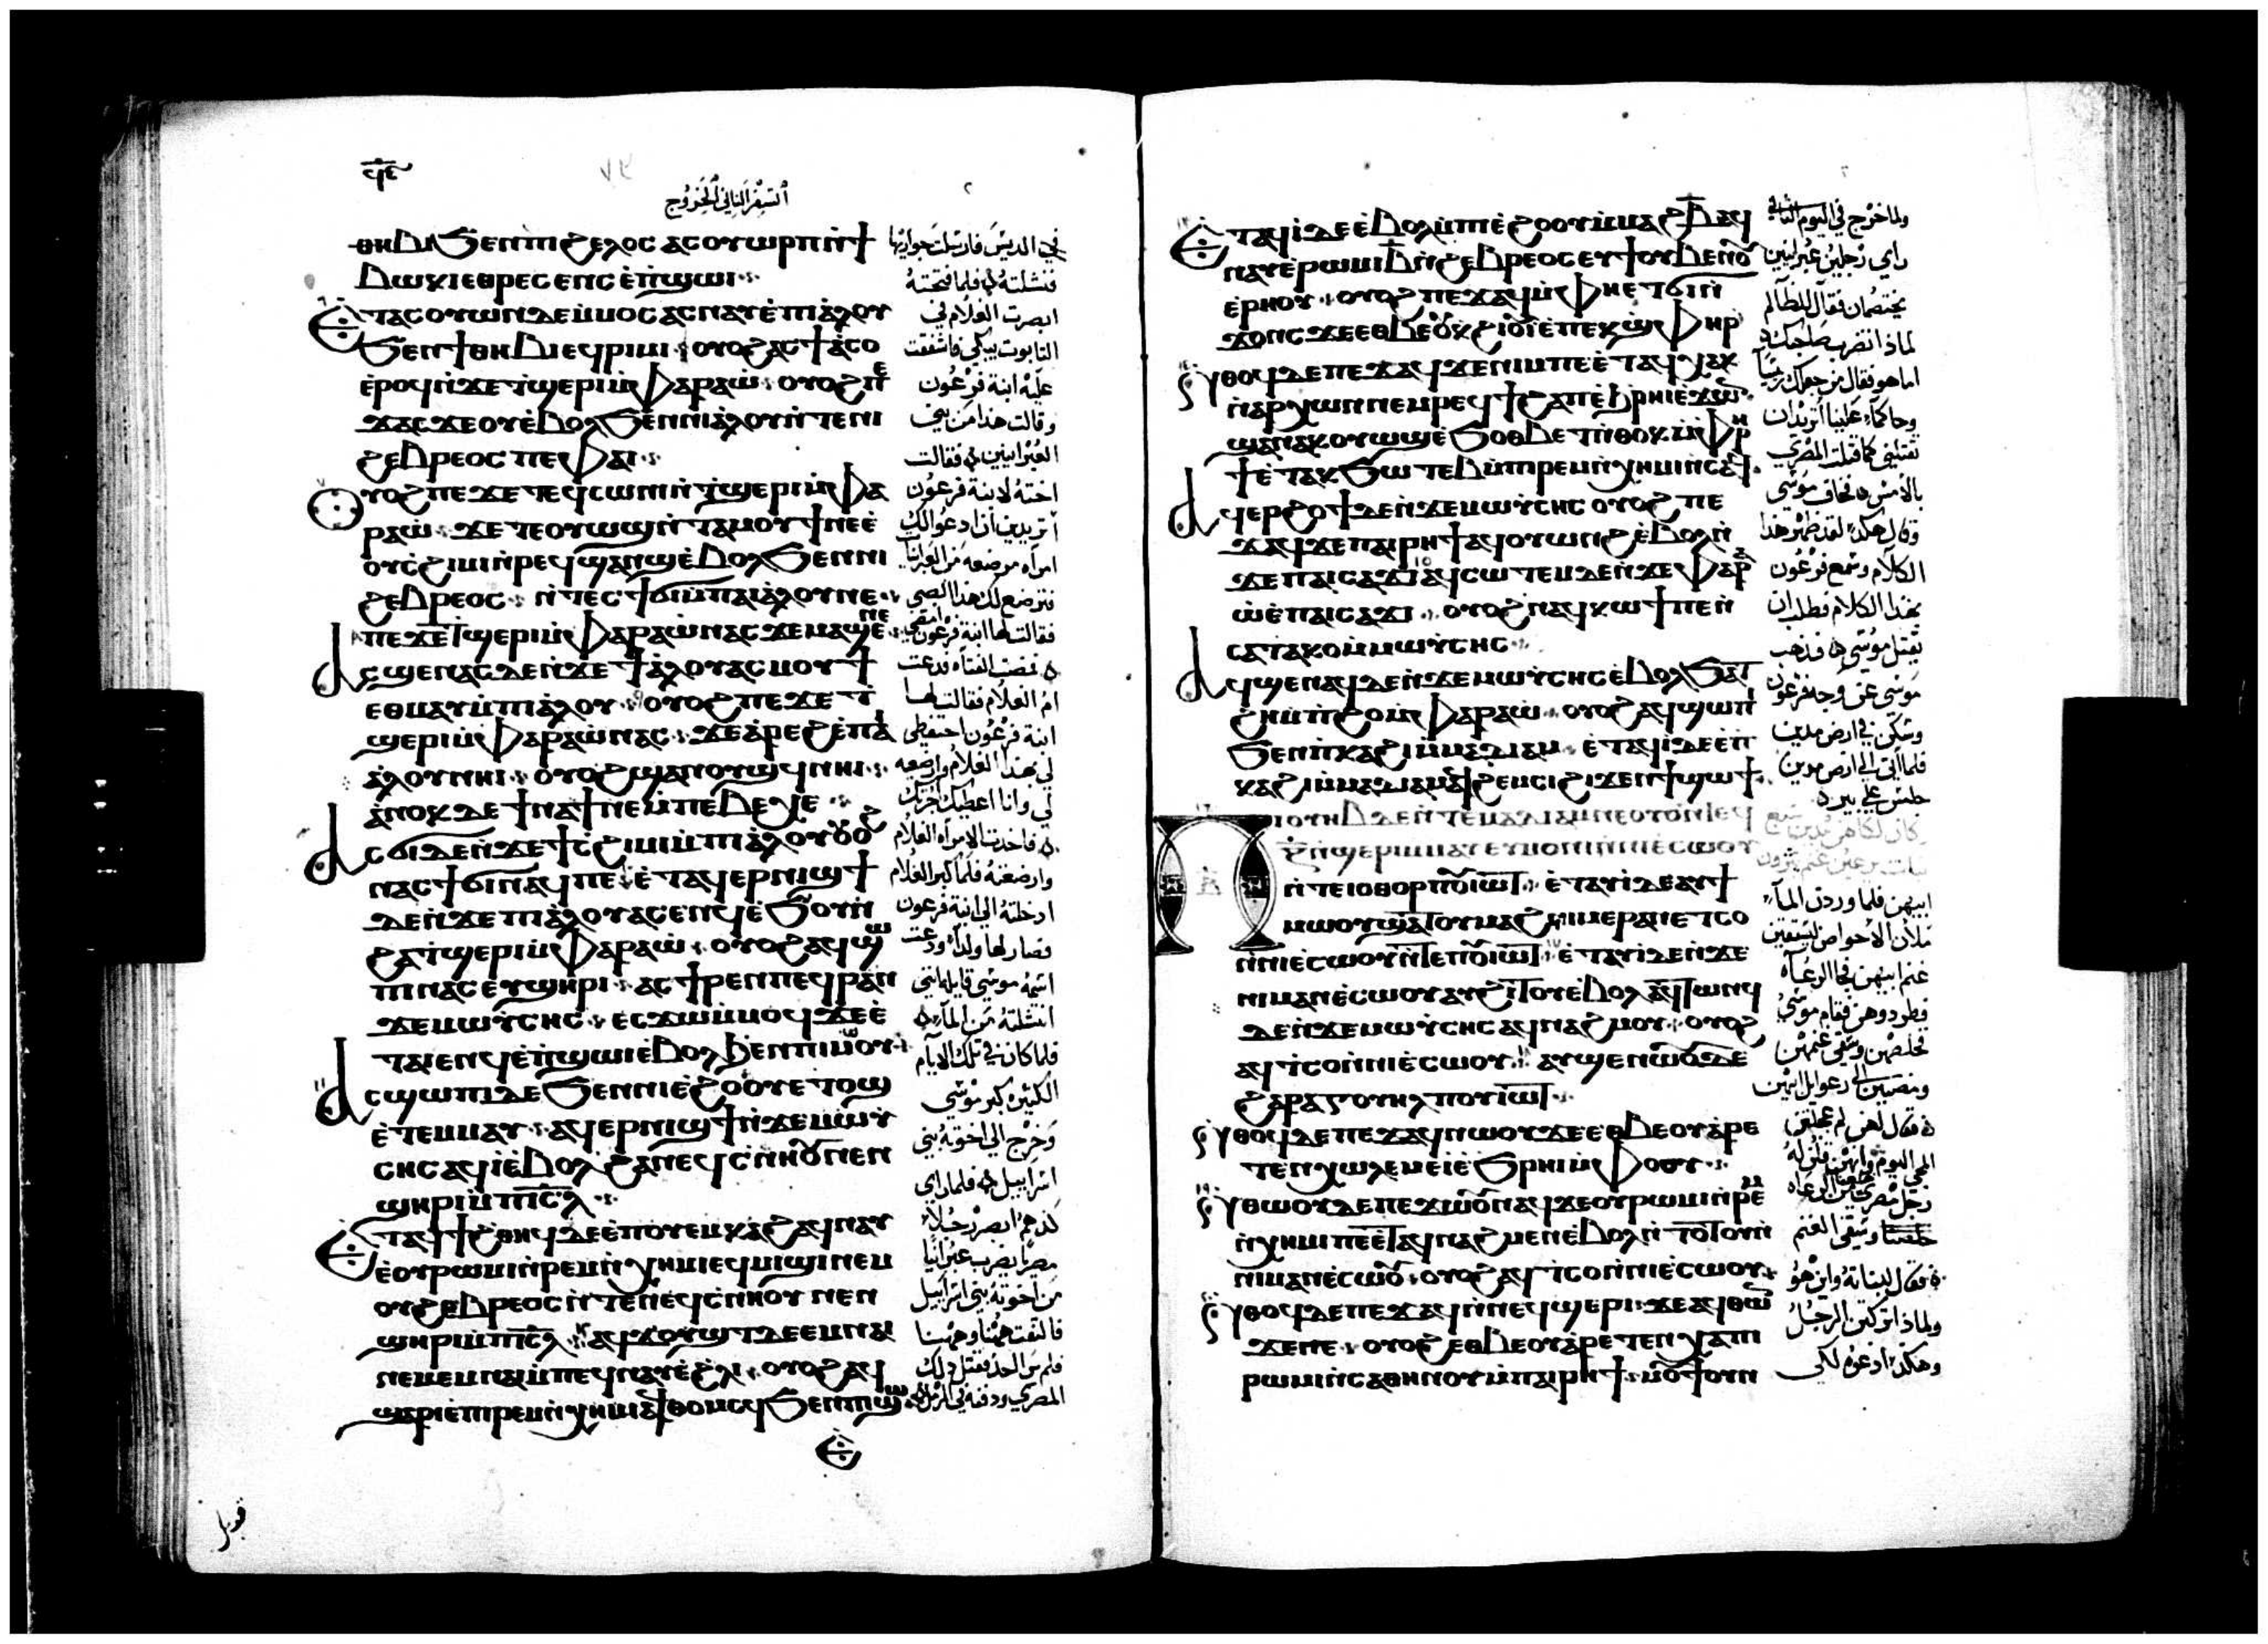 ϥⲉ
السفر الثاني الخروج
ⲑⲏⲃⲓ ϧⲉⲛ ⲡⲓϩⲉⲗⲟⲥ ⲁⲥⲟⲩⲱⲣⲡ ⲛ̀ϯ
ⲃⲱⲕⲓ ⲉⲑⲣⲉⲥⲉⲛϥ ⲉ̀ⲡ̀ϣⲱⲓ
ⲉⲧⲁⲥⲟⲩⲱⲛ ⲇⲉ ⲙ̀ⲙⲟⲥ ⲁⲥⲛⲁⲩ ⲉ̀ⲡⲓⲁ̀ⲗⲟⲩ
ϧⲉⲛ ϯⲑⲏⲃⲓ ⲉϥⲣⲓⲙⲓ ⲟⲩⲟϩ ⲁⲥϯⲁ̀ⲥⲟ
ⲉ̀ⲣⲟϥ ⲛ̀ϫⲉ ⲧ̀ϣⲉⲣⲓ ⲙ̀ⲫⲁⲣⲁⲱ̀ ⲟⲩⲟϩ ⲡⲉ
ϫⲁⲥ ϫⲉ ⲟⲩⲉ̀ⲃⲟⲗ ϧⲉⲛ ⲛⲓⲁ̀ⲗⲟⲩ ⲛ̀ⲧⲉ ⲛⲓ
ϩⲉⲃⲣⲉⲟⲥ ⲡⲉ ⲫⲁⲓ
ⲟⲩⲟϩ ⲡⲉϫⲉ ⲧⲉϥⲥⲱⲛⲓ ⲛ̀ⲧ̀ϣⲉⲣⲓ ⲙ̀ⲫⲁ
ⲣⲁⲱ̀ ϫⲉ ⲧⲉⲟⲩⲱϣ ⲛ̀ⲧⲁⲙⲟⲩϯ ⲛⲉ ⲉ̀
ⲟⲩⲥ̀ϩⲓⲙⲓ ⲛ̀ⲣⲉϥϣⲁⲛϣ ⲉ̀ⲃⲟⲗ ϧⲉⲛ ⲛⲓ
ϩⲉⲃⲣⲉⲟⲥ ⲛ̀ⲧⲉⲥϯϭⲓ ⲙ̀ⲡⲁⲓⲁ̀ⲗⲟⲩ ⲛⲉ
ⲡⲉϫⲉ ⲧ̀ϣⲉⲣⲓ ⲙ̀ⲫⲁⲣⲁⲱ̀ ⲛⲁⲥ ϫⲉ ⲙⲁϣⲉ ⲛⲉ
ⲁⲥϣⲉⲛⲁⲥ ⲇⲉ ⲛ̀ϫⲉ ϯⲁ̀ⲗⲟⲩ ⲁⲥⲙⲟⲩϯ
ⲉⲑⲙⲁⲩ ⲙ̀ⲡⲓⲁ̀ⲗⲟⲩ ⲟⲩⲟϩ ⲡⲉϫⲉ ⲧ̀
ϣⲉⲣⲓ ⲙ̀ⲫⲁⲣⲁⲱ̀ ⲛⲁⲥ ϫⲉ ⲁ̀ⲣⲉϩ ⲉ̀ⲡⲁⲓ
ⲁ̀ⲗⲟⲩ ⲛⲏⲓ ⲟⲩⲟϩ ϣⲁⲛⲟⲩϣϥ ⲛⲏⲓ
ⲁ̀ⲛⲟⲕ ⲇⲉ ϯⲛⲁϯ ⲛⲉ ⲙ̀ⲡⲉⲃⲉⲭⲉ
ⲁⲥϭⲓ ⲇⲉ ⲛ̀ϫⲉ ϯⲥ̀ϩⲓⲙⲓ ⲙ̀ⲡⲓⲁ̀ⲗⲟⲩ ⲟⲩⲟϩ
ⲛⲁⲥϯϭⲓ ⲛⲁϥ ⲡⲉ ⲉ̀ⲧⲁϥⲉⲣⲛⲓϣϯ
ⲇⲉ ⲛ̀ϫⲉ ⲡⲓⲁ̀ⲗⲟⲩ ⲁⲥⲉⲛϥ ⲉ̀ϧⲟⲩⲛ
ϩⲁ ⲧ̀ϣⲉⲣⲓ ⲙ̀ⲫⲁⲣⲁⲱ̀ ⲟⲩⲟϩ ⲁϥϣⲱ
ⲡⲓ ⲛⲁⲥ ⲉⲩϣⲏⲣⲓ ⲁⲥϯⲣⲉⲛ ⲡⲉϥⲣⲁⲛ
ϫⲉ ⲙⲱⲩ̀ⲥⲏⲥ ⲉⲥϫⲱ ⲙ̀ⲙⲟⲥ ϫⲉ ⲉ̀
ⲧⲁⲓⲉⲛϥ ⲉ̀ⲡ̀ϣⲱⲓ ⲉ̀ⲃⲟⲗ ϧⲉⲛ ⲡⲓⲙⲱⲟⲩ
ⲁⲥϣⲱⲡⲓ ⲇⲉ ϧⲉⲛ ⲛⲓⲉ̀ϩⲟⲟⲩ ⲉⲧⲟϣ
ⲉ̀ⲧⲉⲙⲙⲁⲩ ⲁϥⲉⲣⲛⲓϣϯ ⲛ̀ϫⲉ ⲙⲱⲩ̀
ⲥⲏⲥ ⲁϥⲓ̀ ⲉ̀ⲃⲟⲗ ϩⲁ ⲛⲉϥⲥ̀ⲛⲏⲟⲩ ⲛⲉⲛ
ϣⲏⲣⲓ ⲙ̀ⲡⲓⲥ̅ⲗ̅
ⲉⲧⲁϥϯϩ̀ⲑⲏϥ ⲇⲉ ⲉ̀ⲡⲟⲩⲉⲙⲕⲁϩ ⲁϥⲛⲁⲩ
ⲉ̀ⲟⲩⲣⲱⲙⲓ ⲛ̀ⲣⲉⲙⲛ̀ⲭⲏⲙⲓ ⲉϥⲙⲓϣⲓ ⲛⲉⲙ
ⲟⲩϩⲉⲃⲣⲉⲟⲥ ⲛ̀ⲧⲉ ⲛⲉϥⲥ̀ⲛⲏⲟⲩ ⲛⲉⲛ
ϣⲏⲣⲓ ⲙ̀ⲡⲓⲥ̅ⲗ̅ ⲁϥϫⲟⲩϣⲧ ⲇⲉ ⲉⲙⲛⲁⲓ
ⲛⲉⲙ ⲉⲙⲛⲁⲓ ⲙ̀ⲡⲉϥⲛⲁⲩ ⲉ̀ϩ̀ⲗⲓ ⲟⲩⲟϩ ⲁϥ
ϣⲁⲣⲓ ⲉ̀ⲡⲓⲣⲉⲙⲛ̀ⲭⲏⲙⲓ ⲁϥⲑⲟⲙⲥϥ ϧⲉⲛ ⲡⲓϣⲱ
ⲉ
قوبل
في الديس فارسلت جواريها
فنشلته فلما فتحته
ابصرت الغلام في
التابوت يبكي فاشفقت
عليه ابنة فرعون
وقالت هذا من بني
العبرانيين فقالت
اخته لابنة فرعون
أتريدين أن ادعو الك
امرأه مرضعة من العبرانيات
فترضع لك هذا الصبي
فقالت لها ابنة فرعون امضي
فمضت الفتاه فدعت
ام الغلام فقالت لها
ابنة فرعون احتفظي
لي بهذا الغلام وارضعيه
لي وانا اعطيك اجرتك
فاخدت الامراه الغلام
وارضعته فلما كبر الغلام
ادخلته الي ابنة فرعون
فصار لها ولداً ودعت
اسمه موسي قايلة انني
انتشلته من الماء
فلما كان في تلك الايام
الكثيره كبر موسي
وخرج الي اخوته بني
اسراييل فلما راي
كدهم ابصر رجلاً
مصريا يضرب عبرانيا
من اخوته بني اسراييل
فالتفت هنا وهنا
فلم ير احد فقتل ذلك
المصري ودفنه في الرمل
ⲉⲧⲁϥⲓ̀ ⲇⲉ ⲉ̀ⲃⲟⲗ ⲙ̀ⲡⲓⲉ̀ϩⲟⲟⲩ ⲙ̀ⲙⲁϩⲃ̅ ⲁϥ
ⲛⲁⲩ ⲉ̀ⲣⲱⲙⲓ ⲃ̅ ⲛ̀ϩⲉⲃⲣⲉⲟⲥ ⲉⲩϯ ⲟⲩⲃⲉ ⲛⲟⲩ
ⲉ̀ⲣⲏⲟⲩ ⲟⲩⲟϩ ⲡⲉϫⲁϥ ⲙ̀ⲫⲏ ⲉⲧϭⲓ ⲛ̀
ϫⲟⲛⲥ ϫⲉ ⲉⲑⲃⲉⲟⲩ ⲕϩⲓⲟⲩⲓ̀ ⲉ̀ⲡⲉⲕϣ̀ⲫⲏⲣ
ⲛ̀ⲑⲟϥ ⲇⲉ ⲡⲉϫⲁϥ ϫⲉ ⲛⲓⲙ ⲡⲉ ⲉ̀ⲧⲁϥⲭⲁⲕ
ⲛ̀ⲁⲣⲭⲱⲛ ⲛⲉⲙ ⲣⲉϥϯϩⲁⲡ ⲉ̀ϩ̀ⲣⲏⲓ ⲉϫⲱⲛ
ϣⲁⲛ ⲁⲕⲟⲩⲱϣ ⲉ̀ϧⲟⲑⲃⲉⲧ ⲛ̀ⲑⲟⲕ ⲙ̀ⲫⲣⲏ
ϯ ⲉ̀ⲧⲁⲕϧⲱⲧⲉⲃ ⲙ̀ⲡⲓⲣⲉⲙⲛ̀ⲭⲏⲙⲓ ⲛ̀ⲥⲁϥ
ⲁϥⲉⲣϩⲟϯ ⲇⲉ ⲛ̀ϫⲉ ⲙⲱⲩ̀ⲥⲏⲥ ⲟⲩⲟϩ ⲡⲉ
ϫⲁϥ ϫⲉ ⲡⲁⲓⲣⲏϯ ⲁϥⲟⲩⲱⲛϩ ⲉ̀ⲃⲟⲗ ⲛ̀
ϫⲉ ⲡⲁⲓⲥⲁϫⲓ ⲁϥⲥⲱⲧⲉⲙ ⲇⲉ ⲛ̀ϫⲉ ⲫⲁⲣⲁ
ⲱ̀ ⲉ̀ⲡⲁⲓⲥⲁϫⲓ ⲟⲩⲟϩ ⲛⲁϥⲕⲱϯ ⲡⲉ ⲛ̀
ⲥⲁ ⲧⲁⲕⲟ ⲙ̀ⲙⲱⲩ̀ⲥⲏⲥ
ⲁϥϣⲉⲛⲁϥ ⲇⲉ ⲛ̀ϫⲉ ⲙⲱⲩ̀ⲥⲏⲥ ⲉ̀ⲃⲟⲗ ϧⲁⲧ
ϩⲏ ⲙ̀ⲡ̀ϩⲟ ⲙ̀ⲫⲁⲣⲁⲱ̀ ⲟⲩⲟϩ ⲁϥϣⲱⲡⲓ
ϧⲉⲛ ⲡ̀ⲕⲁϩⲓ ⲙ̀ⲙⲁⲇⲓⲁⲙ ⲉ̀ⲧⲁϥⲓ̀ ⲇⲉ ⲉ̀ⲡ
ⲕⲁϩⲓ ⲙ̀ⲙⲁⲇⲓⲁⲙ ⲁϥϩⲉⲙⲥⲓ ϩⲓϫⲉⲛ ϯϣⲱϯ
ⲡⲓⲟⲩⲏⲃ ⲇⲉ ⲛ̀ⲧⲉ ⲙⲁⲇⲓⲁⲙ ⲛⲉ ⲟⲩⲟⲛⲧⲉϥ
ⲍ̅ ⲛ̀ϣⲉⲣⲓ ⲙⲙⲁⲩ ⲉⲩⲙⲟⲛⲓ ⲛ̀ⲛⲓⲉ̀ⲥⲱⲟⲩ
ⲛ̀ⲧⲉ ⲓⲟⲑⲟⲣ ⲡⲟⲩⲓⲱⲧ ⲉ̀ⲧⲁⲩⲓ̀ ⲇⲉ ⲁⲩϯ
ⲙⲱⲟⲩ ϣⲁⲧⲟⲩⲙⲁϩ ⲛⲓⲙⲉⲣⲁ ⲉ̀ⲧⲥⲟ
ⲛ̀ⲛⲓⲉ̀ⲥⲱⲟⲩ ⲛ̀ⲧⲉ ⲡⲟⲩⲓⲱⲧ ⲉ̀ⲧⲁⲩⲓ̀ ⲇⲉ ⲛ̀ϫⲉ
ⲛⲓⲙⲁⲛⲉ̀ⲥⲱⲟⲩ ⲁⲩϩⲓⲧⲟⲩ ⲉ̀ⲃⲟⲗ ⲁϥⲧⲱⲛϥ
ⲇⲉ ⲛ̀ϫⲉ ⲙⲱⲩ̀ⲥⲏⲥ ⲁϥⲛⲁϩⲙⲟⲩ ⲟⲩⲟϩ
ⲁϥⲧ̀ⲥⲟ ⲛ̀ⲛⲓⲉ̀ⲥⲱⲟⲩ ⲁⲩϣⲉⲛⲱⲟⲩ ⲇⲉ
ϩⲁ ⲣⲁⲅⲟⲩⲏⲗ ⲡⲟⲩⲓⲱⲧ
ⲛ̀ⲑⲟϥ ⲇⲉ ⲡⲉϫⲁϥ ⲛⲱⲟⲩ ϫⲉ ⲉⲑⲃⲉⲟⲩ ⲁ̀ⲣⲉ
ⲧⲉⲛⲭⲱⲗⲉⲙ ⲉⲓ̀ ⲉ̀ϧⲣⲏⲓ ⲙ̀ⲫⲟⲟⲩ
ⲛ̀ⲑⲱⲟⲩ ⲇⲉ ⲡⲉϫⲱⲟⲩ ⲛⲁϥ ϫⲉ ⲟⲩⲣⲱⲙⲓ ⲛ̀ⲣⲉⲙ
ⲛ̀ⲭⲏⲙⲓ ⲡⲉ ⲉ̀ⲧⲁϥⲛⲁϩⲙⲉⲛ ⲉ̀ⲃⲟⲗ ⲛ̀ⲧⲟⲧⲟⲩ ⲛ̀
ⲛⲓⲙⲁⲛⲉ̀ⲥⲱⲟⲩ ⲟⲩⲟϩ ⲁϥⲧ̀ⲥⲟ ⲛ̀ⲛⲓⲉ̀ⲥⲱⲟⲩ
ⲛ̀ⲑⲟϥ ⲇⲉ ⲡⲉϫⲁϥ ⲛ̀ⲛⲉϥϣⲉⲣⲓ ϫⲉ ⲁϥⲑⲱⲛ
ϫⲉ ⲡⲉ ⲟⲩⲟϩ ⲉⲑⲃⲉⲟⲩ ⲁ̀ⲣⲉⲧⲉⲛⲭⲁ ⲡⲓ
ⲣⲱⲙⲓ ⲛ̀ⲥⲁⲑⲏⲛⲟⲩ ⲙ̀ⲡⲁⲓⲣⲏϯ ⲙⲟⲩϯ ⲟⲩⲛ
ولما خرج في اليوم الثاني
راي رجلين عبرانيين
يختصمان فقال للظالم
لماذا تضرب صاحبك
اما هو فقال من جعلك رييساً
وحاكماً علينا أتريد ان
تقتلني كما قتلت المصري
بالأمس فخاف موسي
وقال هكذا لقد ظهر هذا
الكلام وسمع فرعون
بهذا الكلام فطلب ان
يقتل موسي فذهب
موسي عن وجه فرعون
وسكن في ارض مدين
فلما أتي الي ارض مدين
جلس علي بير
كان لكاهن مدين سبع
بنات يرعين غنم يثرون
ابيهن فلما وردن الماء
ملأن الأحواض ليسقين
غنم ابيهن فجا الرعاه
فطردوهن فقام موسي
فخلصهن وسقي غنمهن
ومضين الي رعوايل ابيهن
فقال لهن لم عجلتن
المجي اليوم فقلن له
رجل مصري خلصنا من الرعاه
وسقي الغنم
فقال لبناته واين هو
ولماذا تركتن الرجل
وهكذا ادعوه لكي